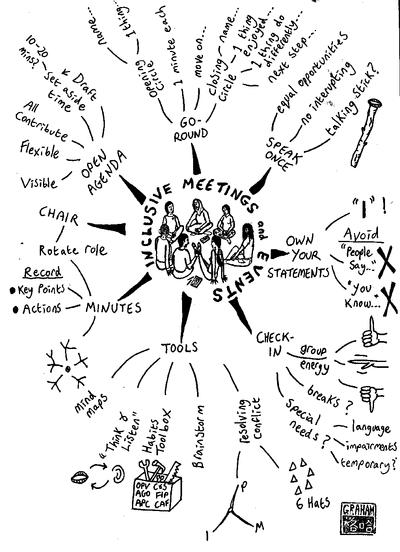 INCLUSIVE MEETINGS
and EVENTS
GO-
ROUND
Opening
Circle
name...
1 thing...
1 minute each
move on...
closing
circle
name...
1 thing
enjoyed...
1 thing do
differently...
next step...
SPEAK
ONCE
equal opportunities
no interrupting
talking stick?
OWN
YOUR
STATEMENTS
"I" !
Avoid
"People
Say..."
"You
Know..."
CHECK-
IN
group
energy
breaks?
Special
needs?
language
impairments
temporary?
TOOLS
mind
maps
"Think &
Listen"
Habits
Toolbox
OPV C&S
AGO FIP
APC CAF
Brainstorm
resolving
conflict
P
I
M
6 Hats
MINUTES
Rotate role
Record
• Key Points
• Actions
CHAIR
OPEN
AGENDA
10-20
mins?
* Draft
Set aside
time
All
Contribute
Flexible
Visible
GRAHAM